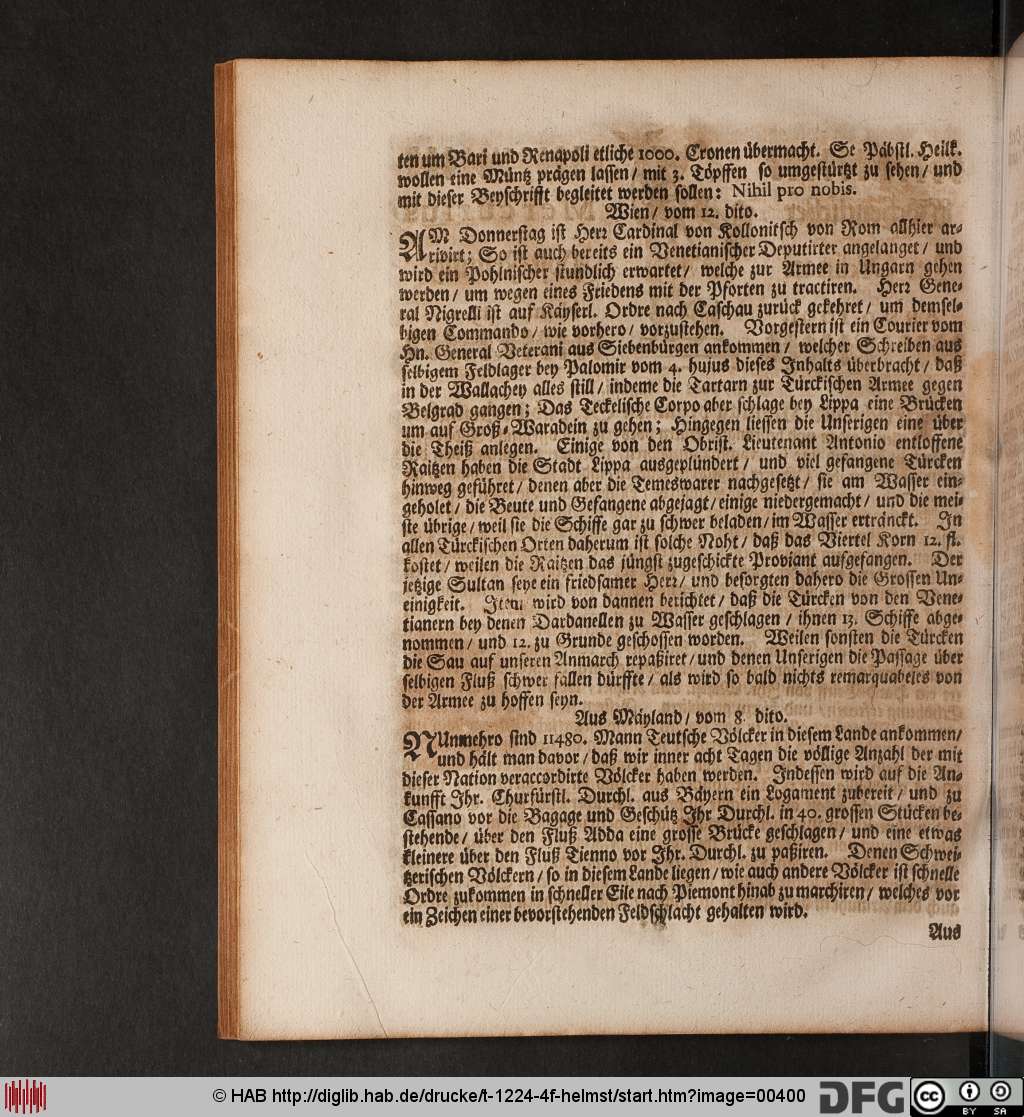 ten um Bari und Renapoli etliche 1000. Cronen übermacht. Se Päbstl. Heilk.
wollen eine Müntz prägen lassen / mit 3. Töpffen so umgestürtzt zu sehen / und
mit dieser Beyschrifft begleitet werden sollen: Nihil pro nobis.
Wien / vom 12. dito.
AM Donnerstag ist Herr Cardinal von Kollonitsch von Rom allhier ar-
rivirt; So ist auch bereits ein Venetianischer Deputirter angelanget / und
wird ein Pohlnischer stündlich erwartet / welche zur Armee in Ungarn gehen
werden / um wegen eines Friedens mit der Pforten zu tractiren. Herr Gene-
ral Nigrelli ist auf Käyserl. Ordre nach Caschau zurück gekehret / um demsel-
bigen Commando / wie vorhero / vorzustehen. Vorgestern ist ein Courier vom
Hn. General Veterani aus Siebenbürgen ankommen / welcher Schreiben aus
selbigem Feldlager bey Palomir vom 4. hujus dieses Inhalts überbracht / daß
in der Wallachey alles still / indeme die Tartarn zur Türckischen Armee gegen
Belgrad gangen; Das Teckelische Corpo aber schlage bey Lippa eine Brücken
um auf Groß-Waradein zu gehen; Hingegen liessen die Unserigen eine über
die Theiß anlegen. Einige von den Obrist. Lieutenant Antonio entloffene
Raitzen haben die Stadt Lippa ausgeplündert / und viel gefangene Türcken
hinweg geführet / denen aber die Temeswarer nachgesetzt / sie am Wasser ein-
geholet / die Beute und Gefangene abgejagt / einige niedergemacht / und die mei-
ste übrige / weil sie die Schiffe gar zu schwer beladen / im Wasser ertränckt. In
allen Türckischen Orten daherum ist solche Noht / daß das Viertel Korn 12. fl.
kostet / weilen die Raitzen das jüngst zugeschickte Proviant aufgefangen. Der
jetzige Sultan seye ein friedsamer Herr / und besorgten dahero die Grossen Un-
einigkeit. Item wird von dannen berichtet / daß die Türcken von den Vene-
tianern bey denen Dardanellen zu Wasser geschlagen / ihnen 13. Schiffe abge-
nommen / und 12. zu Grunde geschossen worden. Weilen sonsten die Türcken
die Sau auf unseren Anmarch repaßiret / und denen Unserigen die Passage über
selbigen Fluß schwer fallen dürffte / als wird so bald nichts remarquabeles von
der Armee zu hoffen seyn.
Aus Mäyland / vom 8. dito.
NUnmehro sind 11480. Mann Teutsche Völcker in diesem Lande ankommen /
und hält man davor / daß wir inner acht Tagen die völlige Anzahl der mit
dieser Nation veraccordirte Völcker haben werden. Indessen wird auf die An-
kunfft Ihr. Churfürstl. Durchl. aus Bäyern ein Logament zubereit / und zu
Cassano vor die Bagage und Geschütz Ihr Durchl. in 40. grossen Stücken be-
stehende / über den Fluß Adda eine grosse Brücke geschlagen / und eine etwas
kleinere über den Fluß Tienno vor Ihr. Durchl. zu paßiren. Denen Schwei-
tzerischen Völckern / so in diesem Lande liegen / wie auch andere Völcker ist schnelle
Ordre zukommen in schneller Eile nach Piemont hinab zu marchiren / welches vor
ein Zeichen einer bevorstehenden Feldschlacht gehalten wird.
Aus
© HAB http://diglib.hab.de/drucke/t-1224-4f-helmst/start.htm?image=00400
DFG
cc BY SA